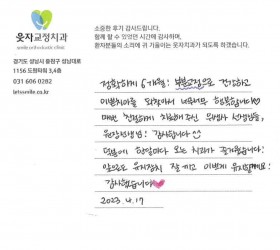 웃자교정치과
smile orthodontic clinic
경기도 성남시 중원구 성남대로
1156 도원타워 3,4층
031 606 0282
letssmile.co.kr
소중한 후기 감사드립니다.
함께 할 수 있었던 시간에 감사하며,
환자분들의 소리에 귀 기울이는 웃자치과가 되도록 하겠습니다.
정확하게 6개월! 부분교정으로 건강하고
이쁜치아를 되찾아서 너무너무 행복합니다♡
매번 친절하게 치료해주신 위생사 선생님들,
원장선생님! 감사합니다
덕분에 한달마다 오는 치과가 즐거웠습니다!
앞으로도 유지장치 잘 끼고 이쁘게 유지할게요!
감사했습니다♡
2023.4.17